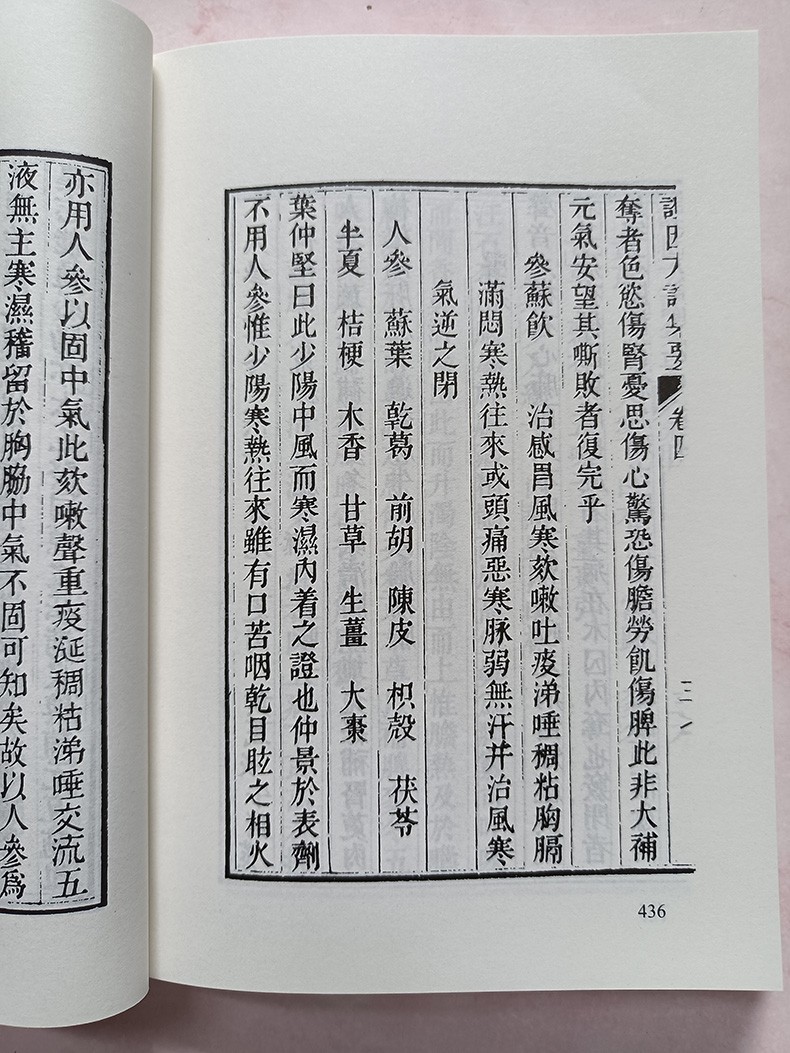 卷四
奪者色慾傷腎憂思傷心驚恐傷膽勞飢傷脾此非大補
元氣安望其嘶敗者復完乎
參蘇飲　治感冒風寒欬嗽吐痰涕唾稠粘胸膈
滿悶寒熱往來或頭痛惡寒脉弱無汗并治風寒
氣逆之閉
人參　蘇葉　乾葛　前胡　陳皮　枳殼　茯苓
半夏　桔梗　木香　甘草　生薑　大棗
葉仲堅曰此少陽中風而寒濕內着之證也仲景於表劑
不用人參惟少陽寒熱往來雖有口苦咽乾目眩之相火
436
亦用人參以固中氣此欬嗽聲重痰涎稠粘涕唾交流五
液無主寒濕稽留於胸脇中氣不固可知矣故以人參爲